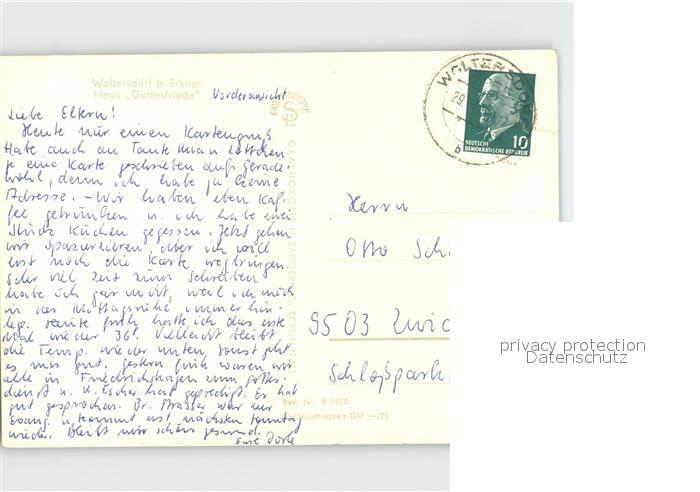 Woltersdorf b. Erkner
Haus „Gottesfriede"
Vorderansicht
Liebe Eltern!
Heute nur einen Kartengruß
Habe auch an Tante Lottchen
je eine Karte geschrieben aufs Gerade-
wohl, denn ich habe ja keine
Adresse. - Wir haben eben Kaf-
fee getrunken u. ich habe zwei
Stück Kuchen gegessen. Jetzt gehen
wir spazieren, aber ich will
erst noch die Karte wegbringen.
Sehr viel Zeit zum Schreiben
habe ich gar nicht, weil ich mich
in der Mittagsruhe immer hin-
lege. Heute früh hatte ich das erste
Mal wieder 36°. Vielleicht bleibt
die Temp. wieder unten, sonst geht
es mir gut. Gestern früh waren wir
alle in Friedrichshagen zum Gottes-
dienst u. U. Escher hat gepredigt. Er hat
gut gesprochen. Br. Strasser war zur
Evang. u. kommt erst nächsten Sonntag
wieder. Bleibt mir schön gesund.
Eure Dorle
WOLTERSDO
29
b
DEUTSCHE
DEMOKRATISCHE REPUBLIK
10
Herrn
Otto Sch
9503 Zwic
Schloßpark
Best.-Nr. B 1620
Verbraucherpreis DM —,25
privacy protection
Datenschutz